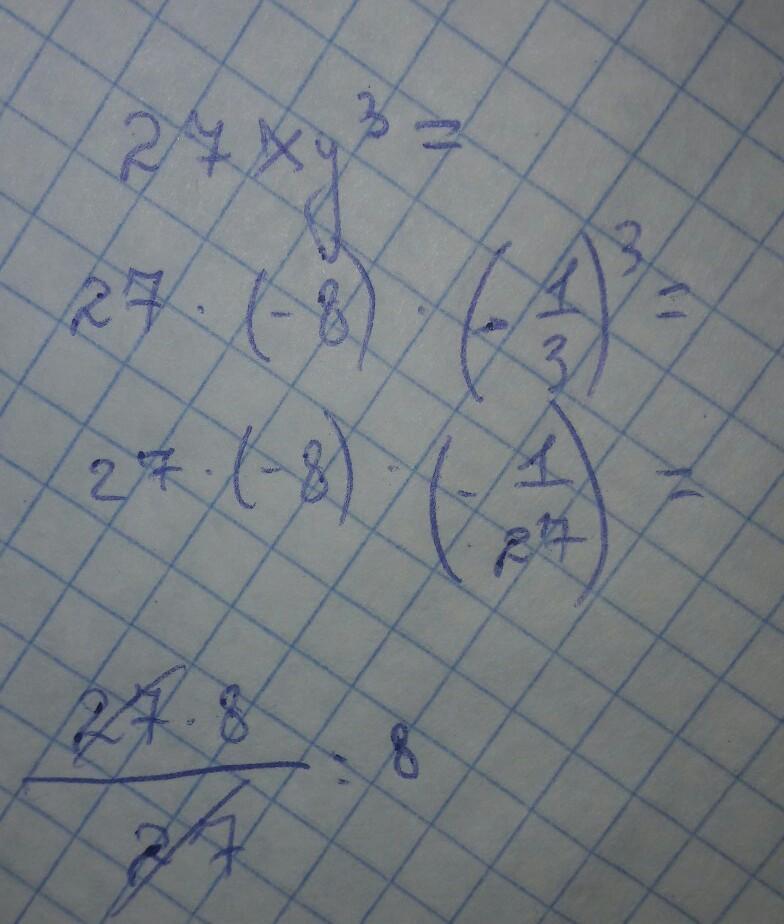 27xy³ =
27 · (-8) · (-1/3)³ =
27 · (-8) · (-1/27) =
27 · 8 / 27 = 8